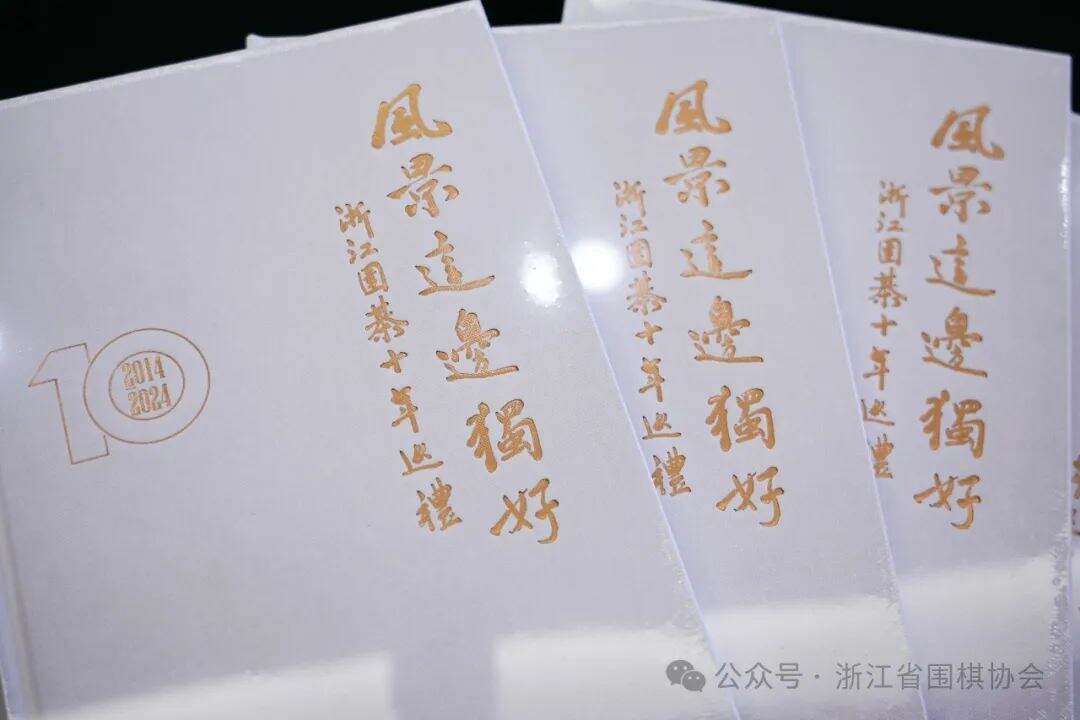 風景這邊獨好
浙江圍棊十年巡禮
10
2014
2024
風景這邊獨好
浙江圍棊十年巡禮
風景這邊獨好
浙江圍棊十年巡禮
公众号·浙江省围棋协会